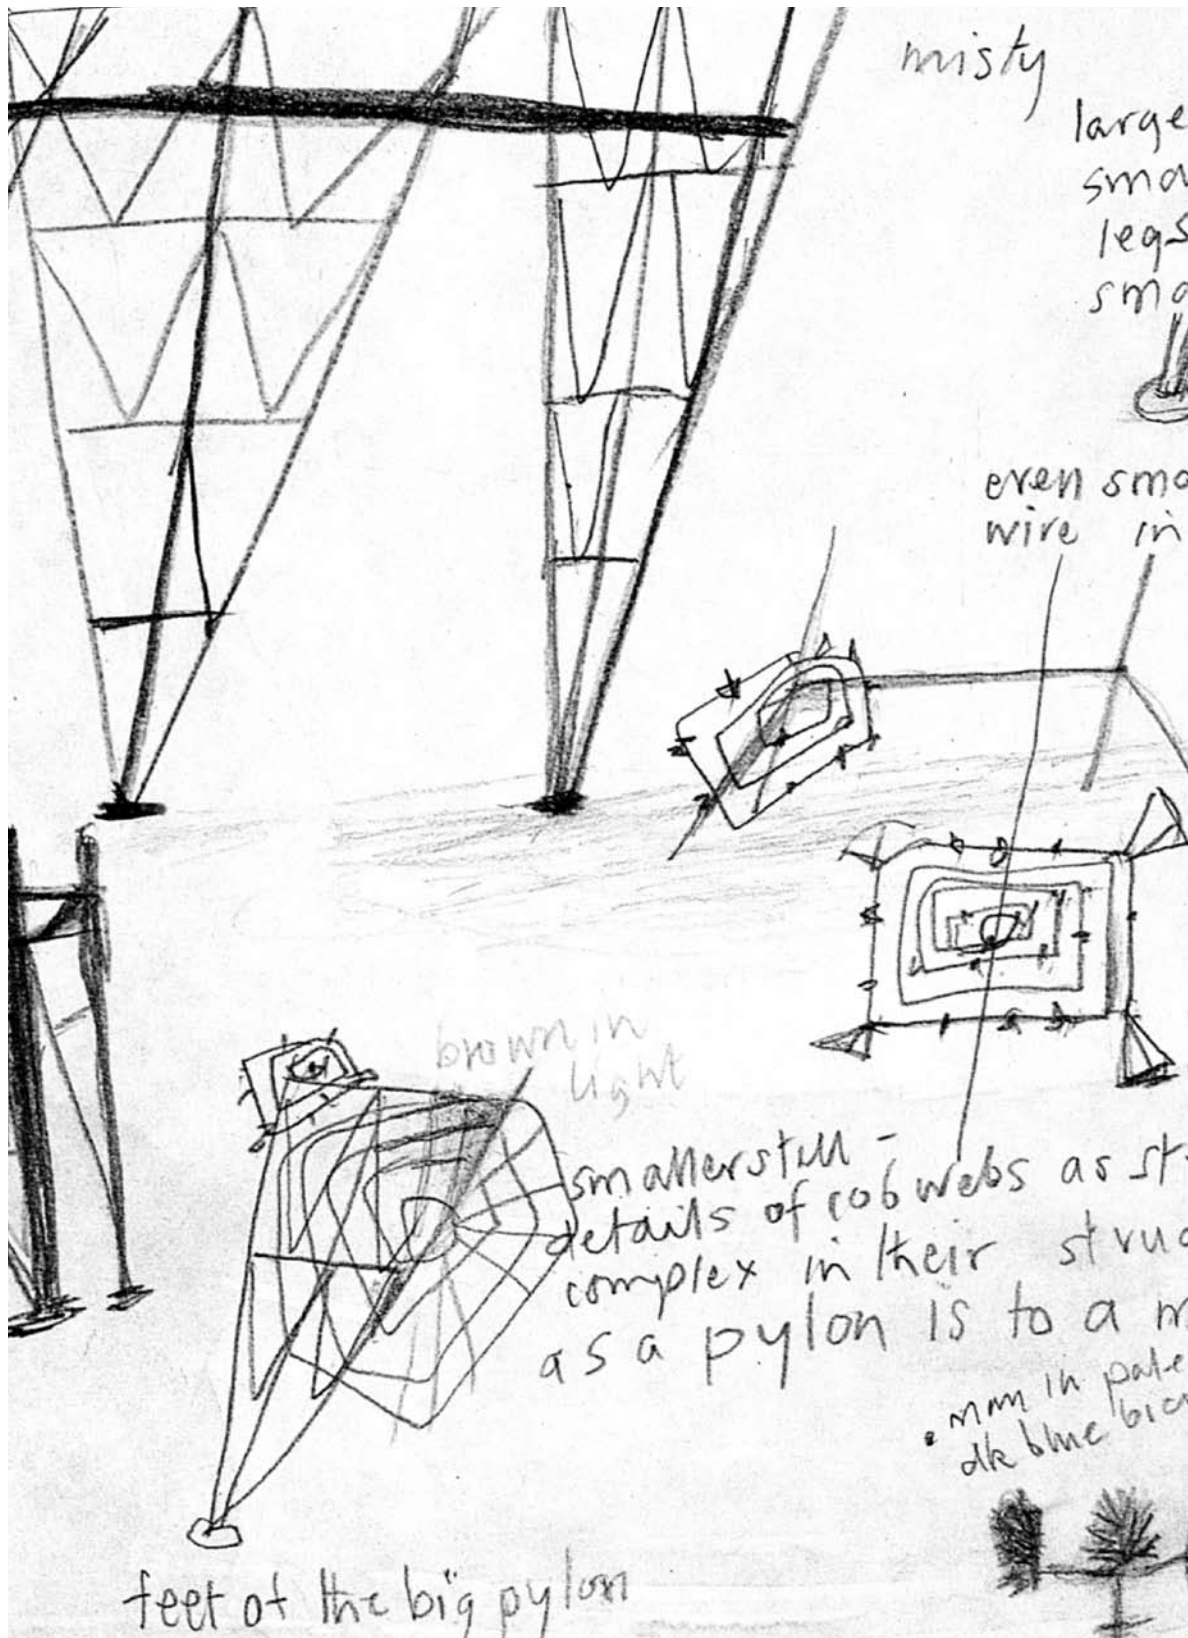 misty
large
sma
legs
sma
even sma
wire in
brown in
light
smaller still -
details of cobwebs as st
complex in their struc
as a pylon is to a m
man in pale
dk blue bicy
feet of the big pylon